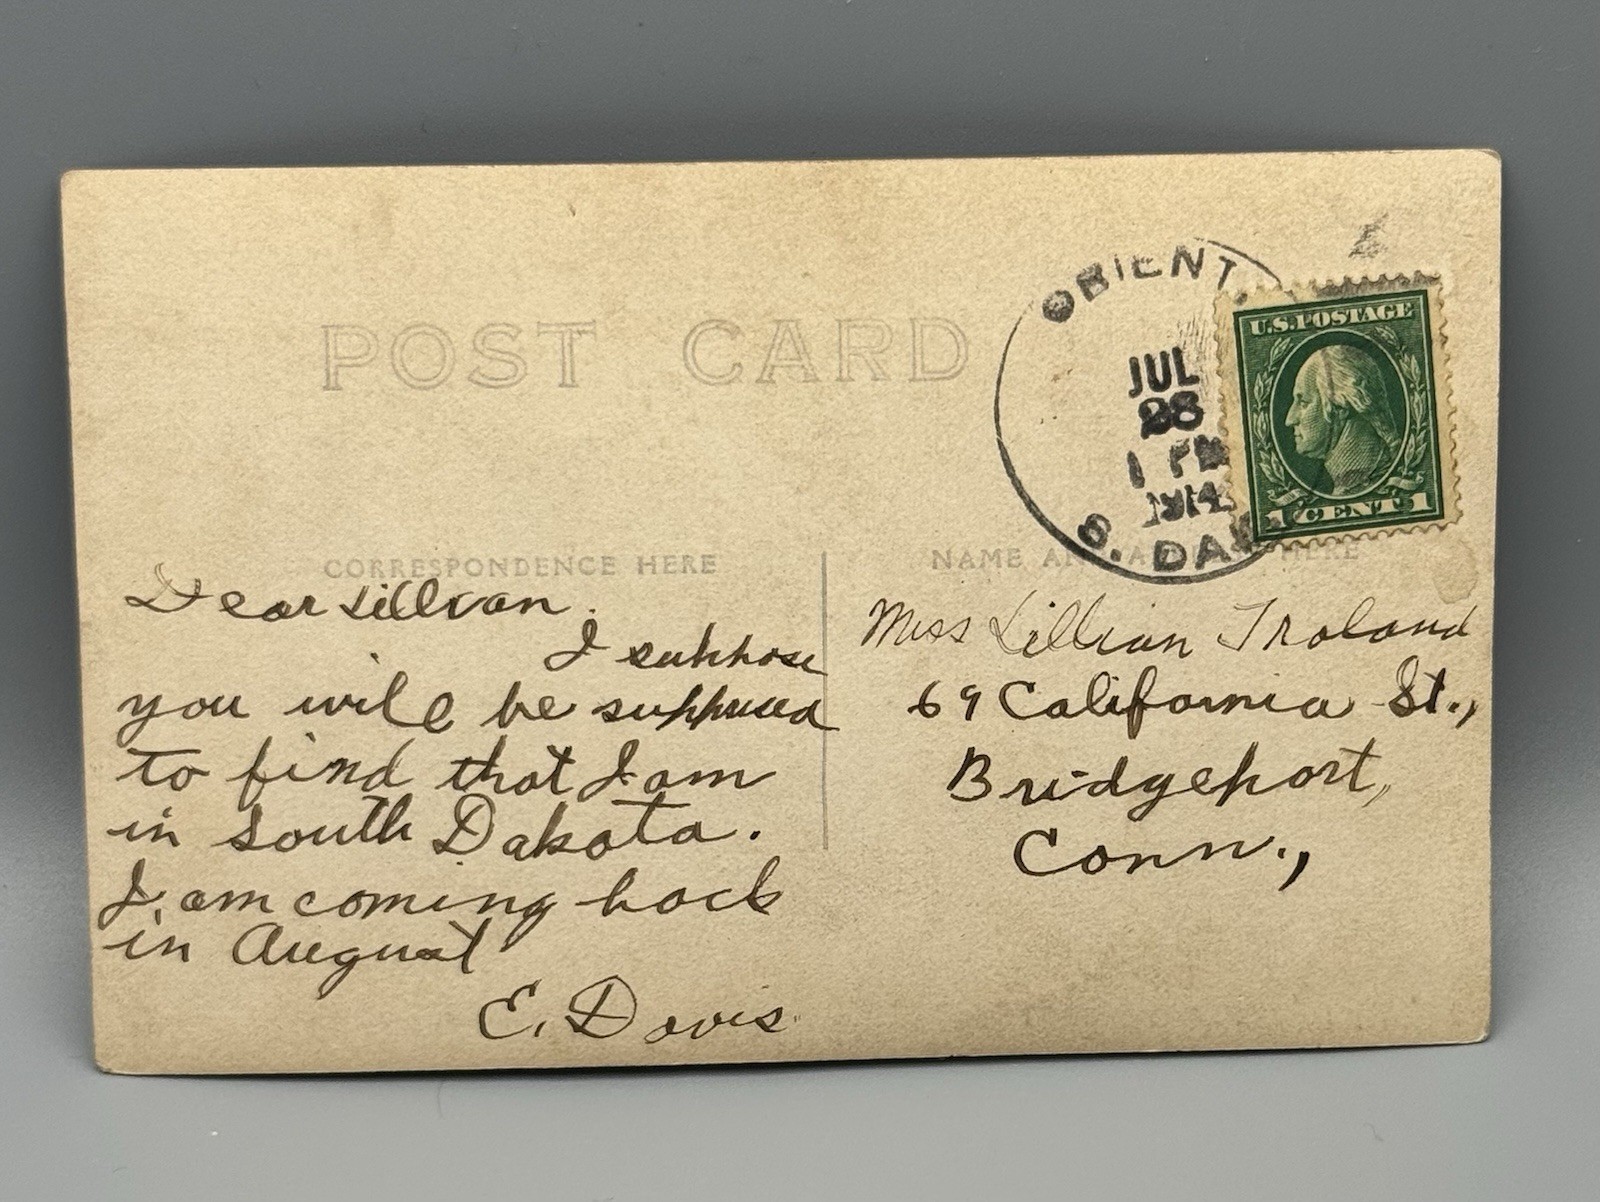 POST CARD
ORIENT.
JUL
28
1 PM
1914
S. DAK
U.S. POSTAGE
1 CENT 1
CORRESPONDENCE HERE
NAME AND ADDRESS HERE
Dear Lillian.
I suppose
you will be suppused
to find that I am
in South Dakota.
I am coming back
in August
E. Davis
Miss Lillian Troland
69 California St.,
Bridgeport,
Conn.,